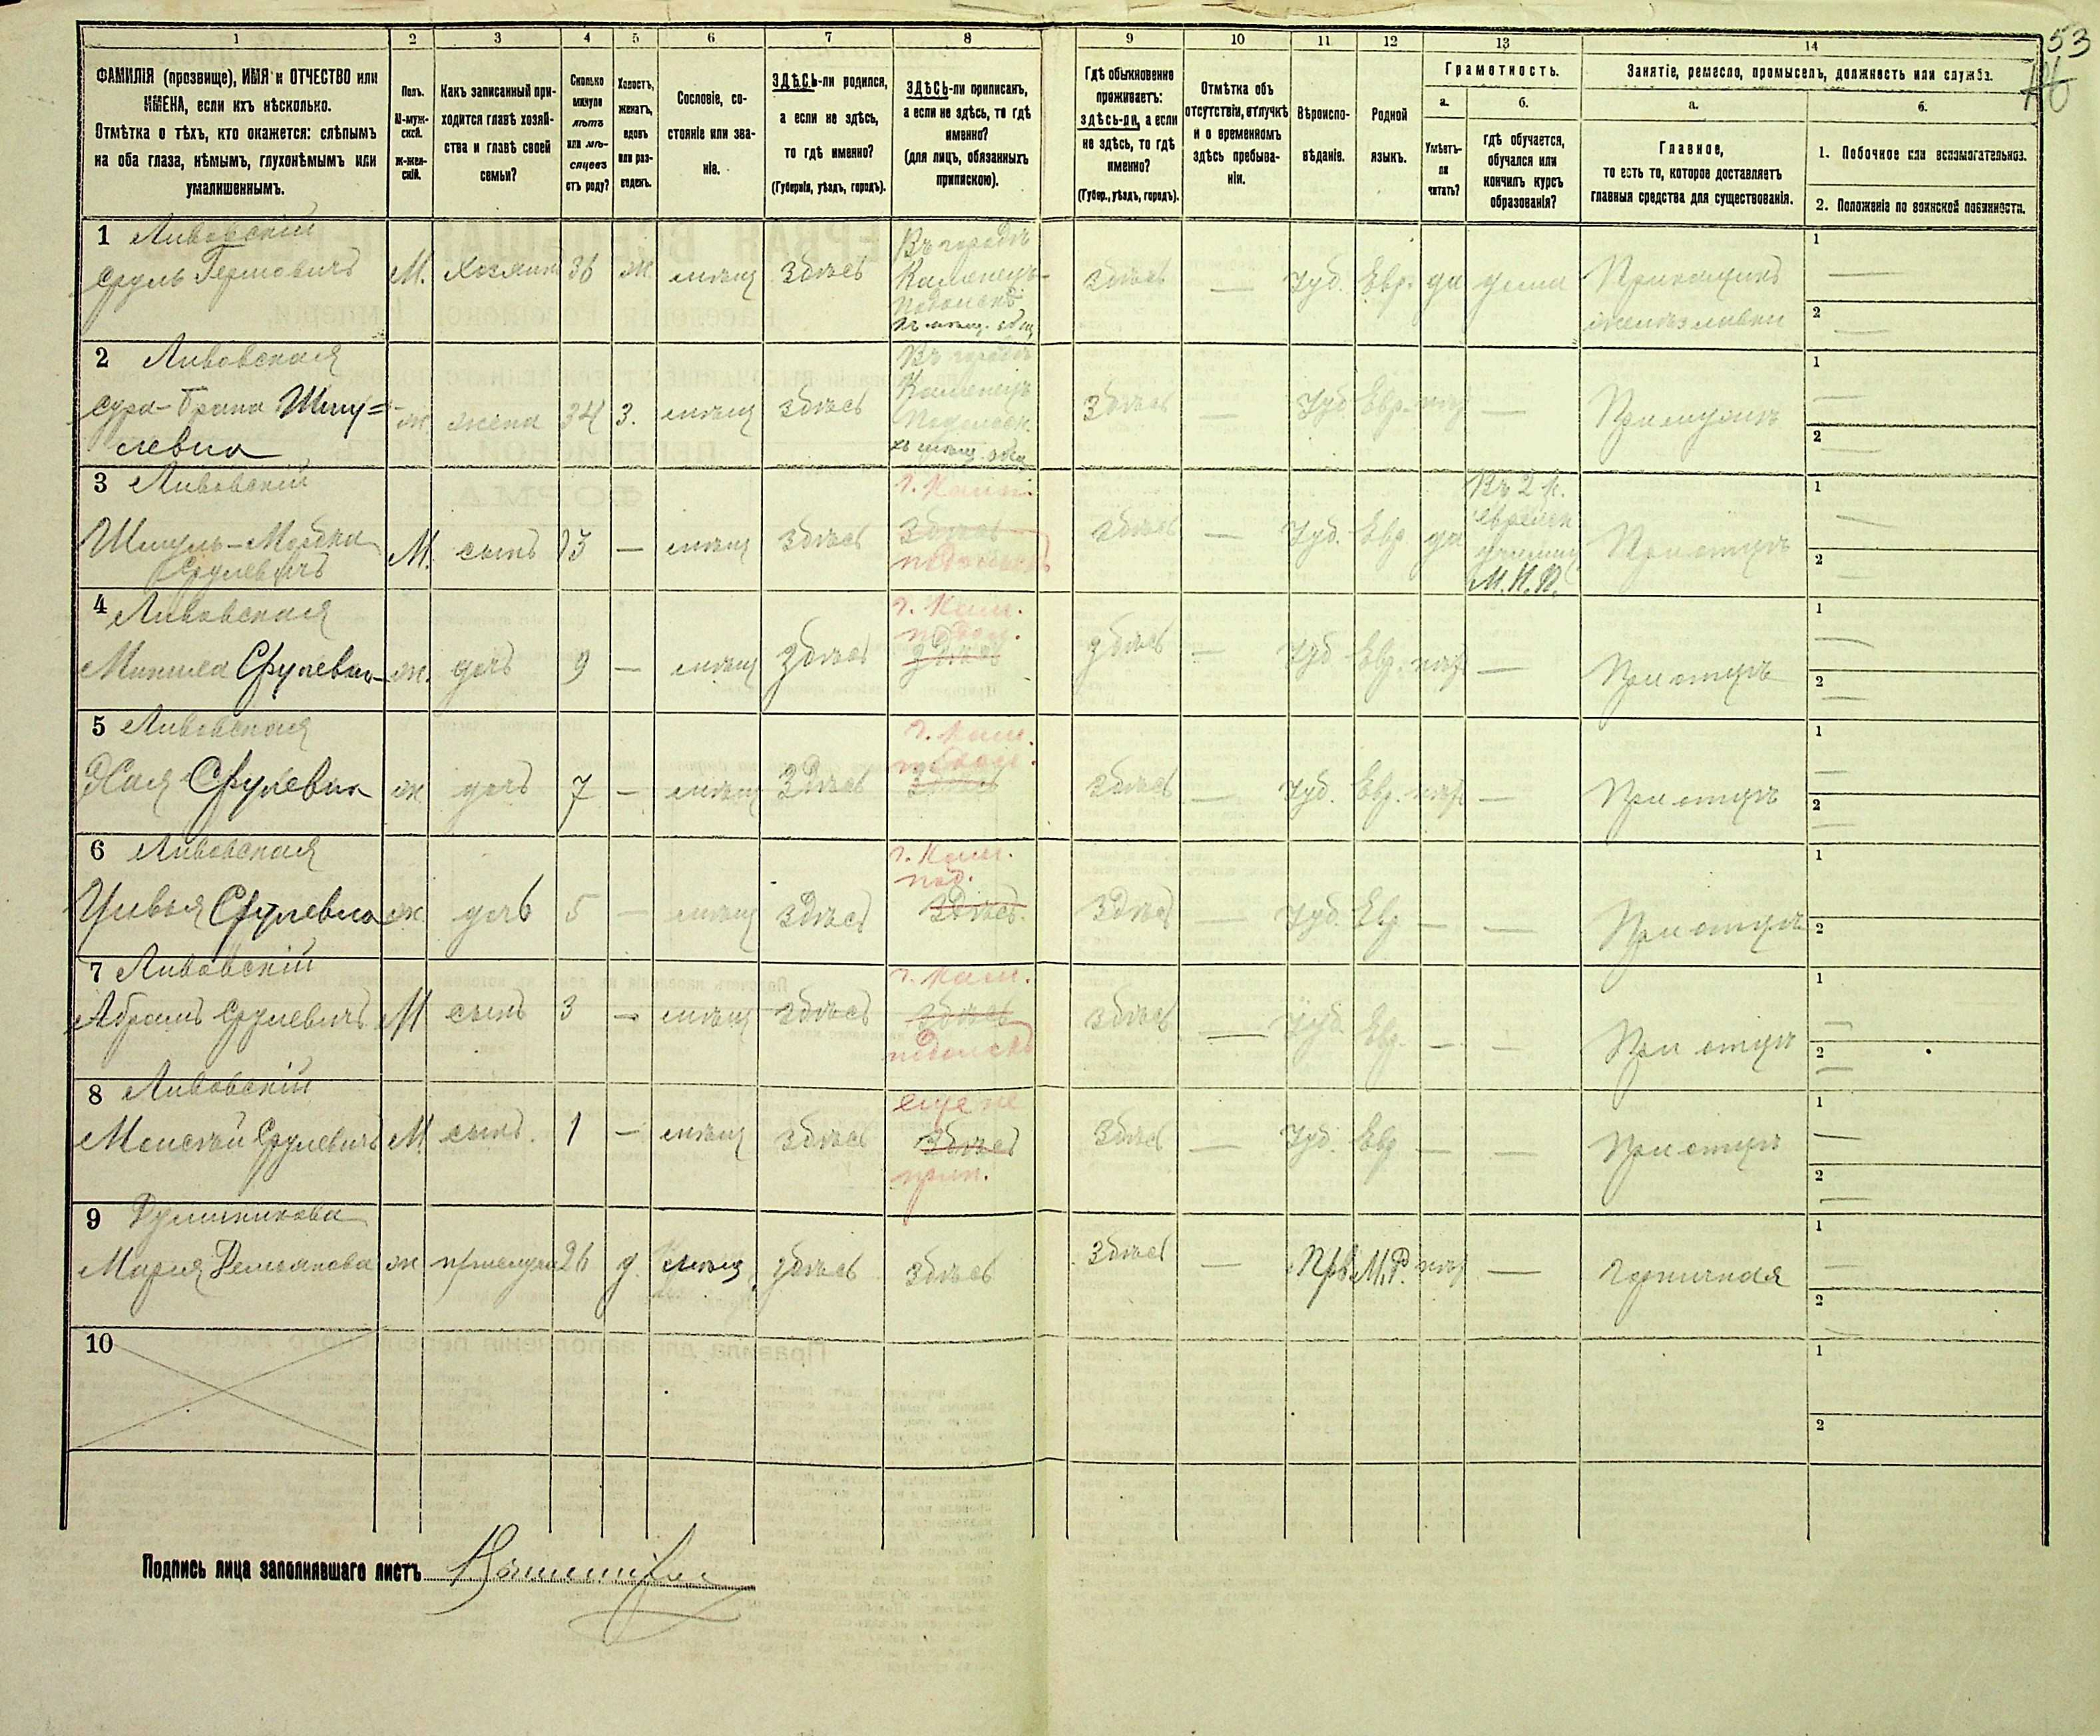 53
1 2 3 4 5 6 7 8 9 10 11 12 13 14
ФАМИЛІЯ (прозвище), ИМЯ и ОТЧЕСТВО или
ИМЕНА, если ихъ нѣсколько.
Отмѣтка о тѣхъ, кто окажется: слѣпымъ
на оба глаза, нѣмымъ, глухонѣмымъ или
умалишеннымъ.
Полъ.
М-муж-
ской.
ж-жен-
скій.
Какъ записанный при-
ходится главѣ хозяй-
ства и главѣ своей
семьи?
Сколько
минуло
лѣтъ
или мѣ-
сяцевъ
отъ роду?
Холостъ,
женатъ,
вдовъ
или раз-
веденъ.
Сословіе, со-
стояніе или зва-
ніе.
ЗДѢСЬ-ли родился,
а если не здѣсь,
то гдѣ именно?
(Губернія, уѣздъ, городъ).
ЗДѢСЬ-ли приписанъ,
а если не здѣсь, то гдѣ
именно?
(для лицъ, обязанныхъ
припискою).
Гдѣ обыкновенно
проживаетъ:
здѣсь-ли, а если
не здѣсь, то гдѣ
именно?
(Губер., уѣздъ, городъ).
Отмѣтка объ
отсутствіи, отлучкѣ
и о временномъ
здѣсь пребыва-
ніи.
Вѣроиспо-
вѣданіе.
Родной
языкъ.
Грамотность.
а.
Умѣетъ-
ли
читать?
б.
гдѣ обучается,
обучался или
кончилъ курсъ
образованія?
Занятіе, ремесло, промыселъ, должность или служба.
а.
Главное,
то есть то, которое доставляетъ
главныя средства для существованія.
б.
1. Побочное или вспомогательное.
2. Положеніе по воинской повинности.
1 Ливовскій
Сруль Гершовичъ М. хозяинъ 36 ж. мѣщ здѣсь
Въ городѣ
Каменецъ-
Подольскѣ
къ мѣщ. общ
здѣсь — Іуд. Евр. да дома Прикащикъ
1 —
2 —
2 Ливовская
Сура-Брана Шму=
левна ж жена 34 З. мѣщ здѣсь
Въ городѣ
Каменецъ
Подольск.
къ мѣщ. общ
здѣсь — Іуд Евр. нѣт — При мужѣ
1 —
2 —
3 Ливовскій
Шмуль-Мордко
Срулевичъ М. сынъ 13 — мѣщ здѣсь
г. Кам.
здѣсь
подольскъ
здѣсь — Іуд. Евр да
Въ 2 к.
еврейск
училищ
М.Н.П.
При отцѣ
1 —
2 —
4 Ливовская
Срулевна ж. дочь 9 — мѣщ здѣсь
г. Кам.
подол.
здѣсь
здѣсь — Іуд Евр. нѣт — При отцѣ
1 —
2 —
5 Ливовская
Хая Срулевна ж дочь 7 — мѣщ здѣсь
г. Кам.
подол.
здѣсь
здѣсь — Іуд. Евр. нѣт — При отцѣ
1 —
2 —
6 Ливовская
Цивья Срулевна ж. дочь 5 — мѣщ здѣсь
г. Кам.
под.
здѣсь.
здѣсь — Іуд. Евр — — При отцѣ
1
2
7 Ливовскій
Абрамъ Срулевичъ М сынъ 3 — мѣщ здѣсь
г. Кам.
здѣсь
подольскъ
здѣсь — Іуд. Евр. — — При отцѣ
1 —
2 —
8 Ливовскій
Моисей Срулевичъ М. сынъ. 1 — мѣщ здѣсь
еще не
здѣсь
прип.
здѣсь — Іуд. Евр — — При отцѣ
1 —
2 —
9
Мария Демьянова ж прислуга 26 д. мѣщ здѣсь здѣсь
здѣсь — Прв М.Р. нѣт — горничная
1 —
2 —
10
1
2
Подпись лица заполнявшаго листъ